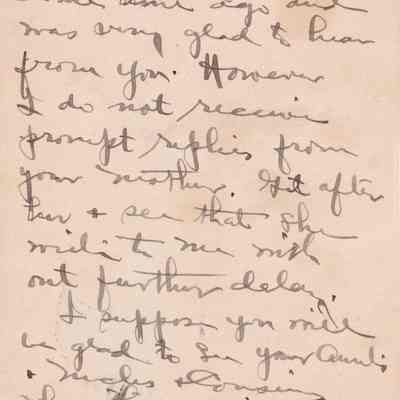 some time ago and
was very glad to hear
from you. However
I do not receive
prompt replies from
your mother. Get after
her + see that she
writes to me with
out further delay.
I suppose you will
be glad to see your Aunts
+ Uncles + Cousins